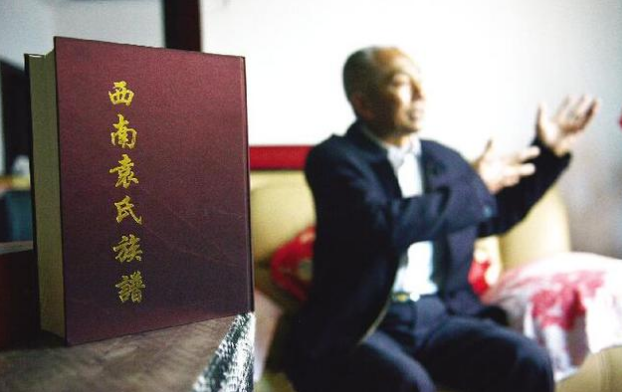 西南袁氏族譜